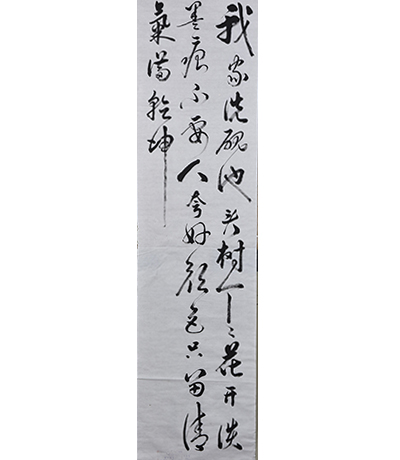 我家洗砚池头树个々花开淡
墨痕不要人夸好颜色只留清
氣满乾坤